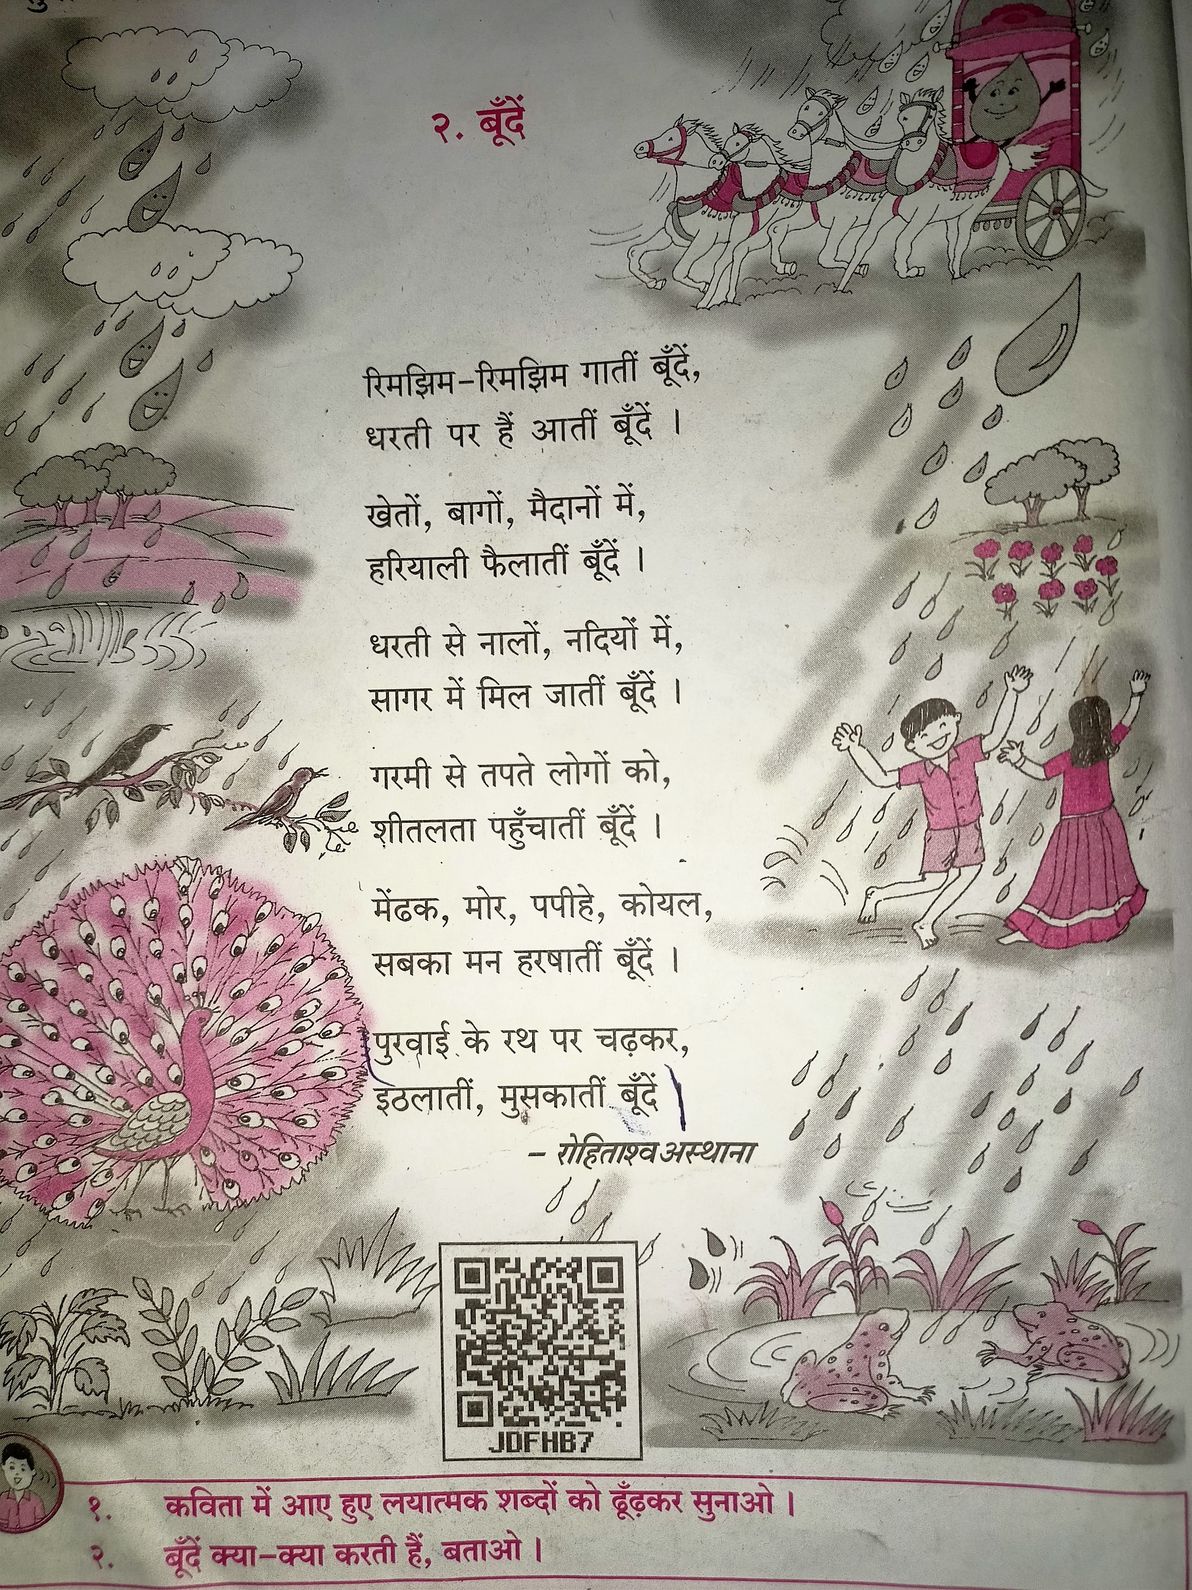 २. बूँदें
रिमझिम-रिमझिम गातीं बूँदें,
धरती पर हैं आतीं बूँदें ।
खेतों, बागों, मैदानों में,
हरियाली फैलातीं बूँदें ।
धरती से नालों, नदियों में,
सागर में मिल जातीं बूँदें ।
गरमी से तपते लोगों को,
शीतलता पहुँचातीं बूँदें ।
मेंढक, मोर, पपीहे, कोयल,
सबका मन हरषातीं बूँदें ।
पुरवाई के रथ पर चढ़कर,
इठलातीं, मुसकातीं बूँदें
- रोहिताश्व अस्थाना
JDFHB7
१. कविता में आए हुए लयात्मक शब्दों को ढूँढ़कर सुनाओ ।
२. बूँदें क्या-क्या करती हैं, बताओ ।